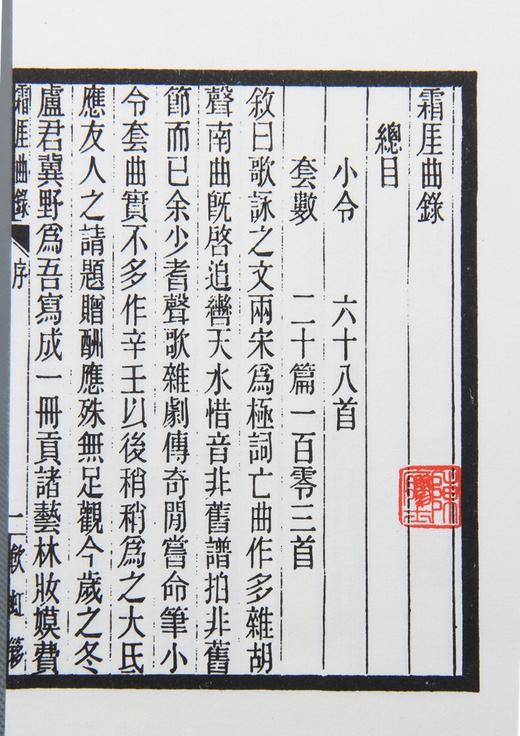 霜厓曲錄
總目
小令 六十八首
套數 二十篇一百零三首
敘曰歌詠之文兩宋爲極詞亡曲作多雜胡
聲南曲旣啓追轡天水惜音非舊譜拍非舊
節而已余少耆聲歌雜劇傳奇閒嘗命筆小
令套曲實不多作辛壬以後稍稍爲之大氐
應友人之請題贈酬應殊無足觀今歲之冬
盧君冀野爲吾寫成一冊貢諸藝林妝嫫費
霜厓曲錄 序 一 飲虹簃